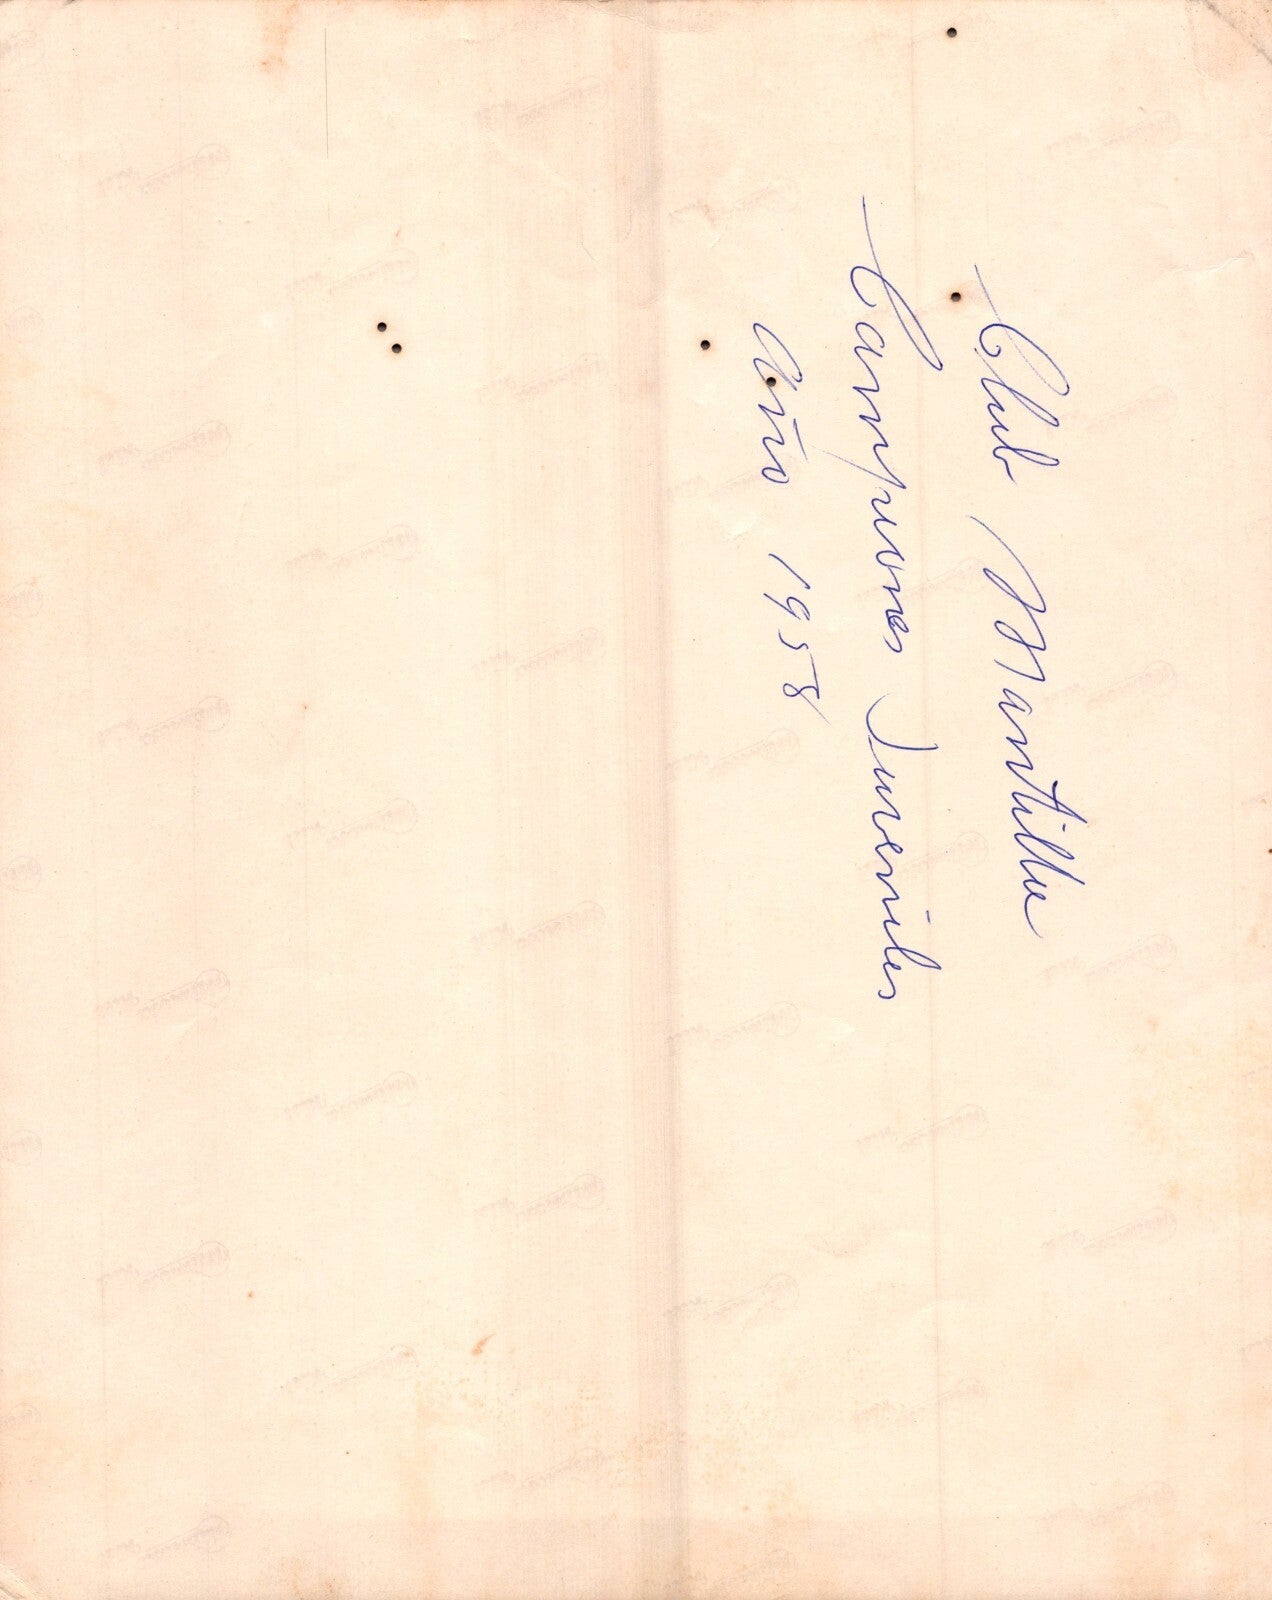 Club Mantilla
Campeones Juveniles
Año 1958